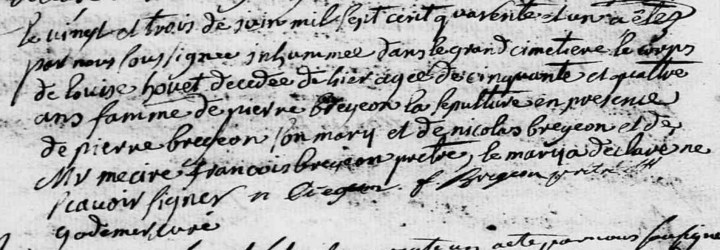 le vingt et trois de juin mil sept cent quarente et un a etes
par nous soussignee inhummee dans le grand cimetiere le corps
de louise houet decedee de hier agee de cinquante et quattre
ans famme de pierre breyeon la sepulture en presence
de pierre breyeon son mary et de nicolas breyeon et de
Mr mecire francois breyeon pretre, le mary a declare ne
scavoir signer n breyeon f Breyeon pretre
godemer curé
acte, par nous soussigne